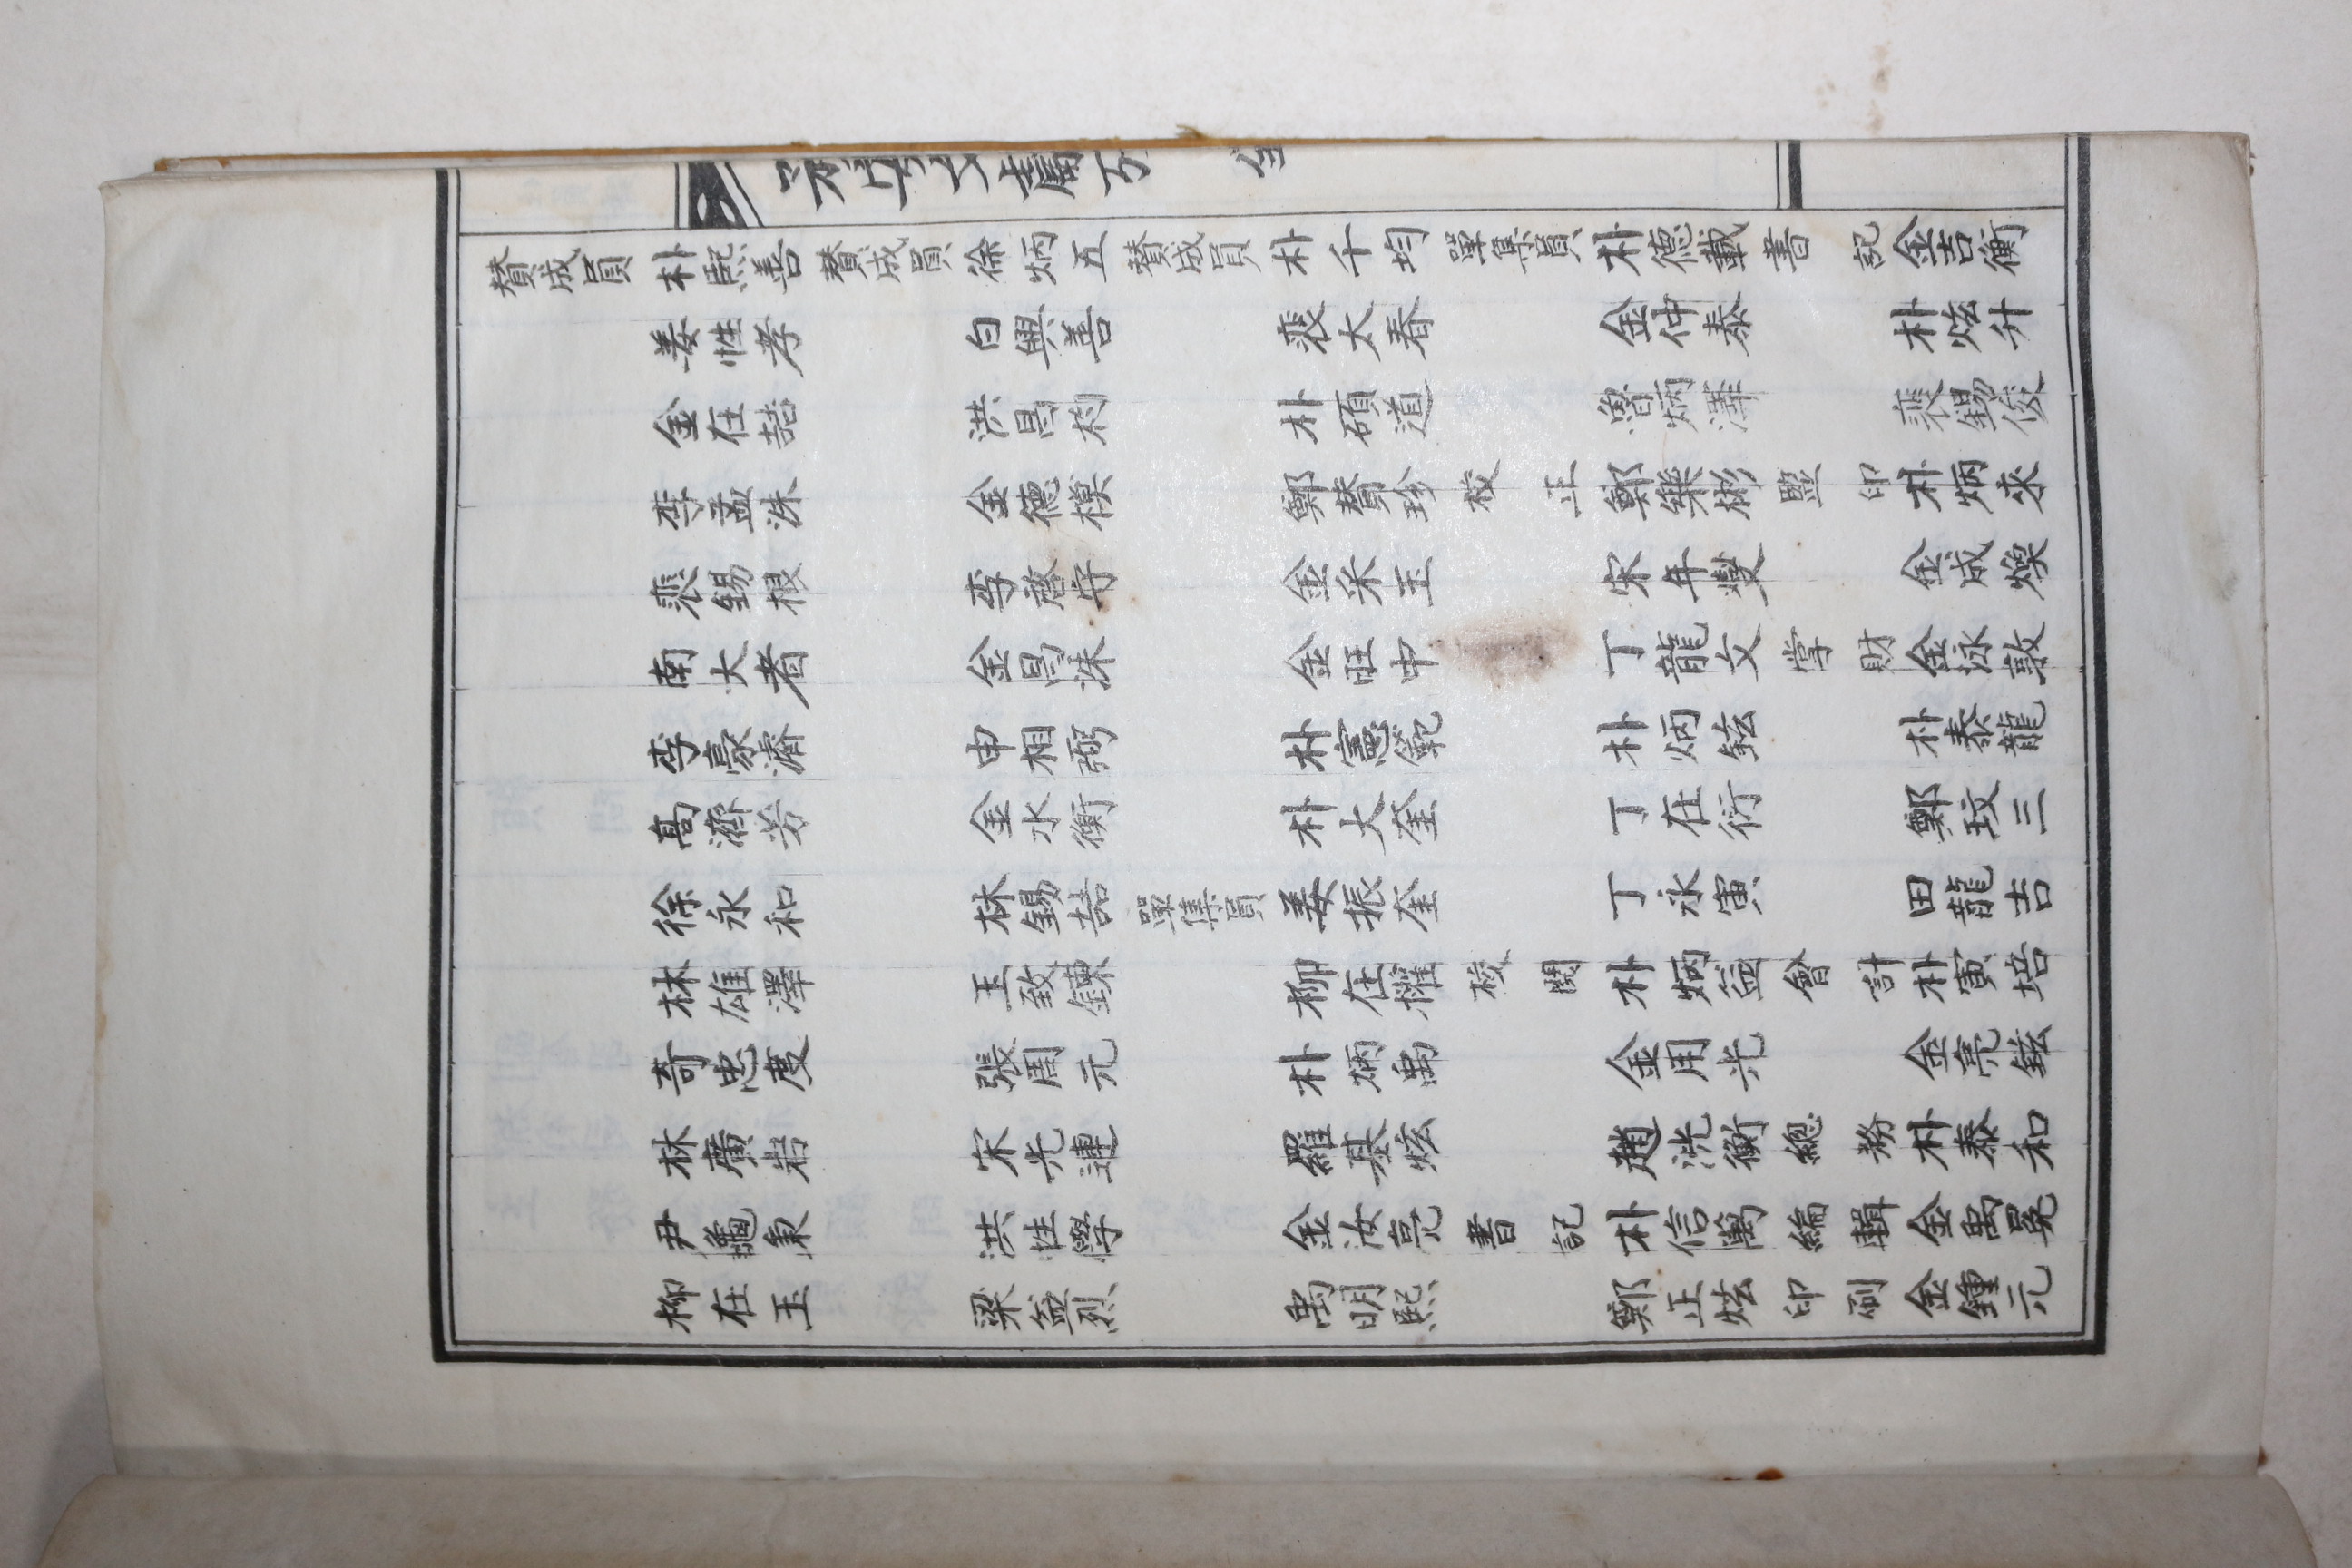 贊成員 朴熙善 贊成員 徐炳五 贊成員 朴千均 單集員 朴德載 書記 金吉衡
姜性孝 白興善 裵太春 金仲泰 朴炫升
金在喆 洪昌杓 朴碩道 魯炳澤 裵錫俊
李孟洙 金德模 鄭贊珍 校正 鄭樂彬 監印 朴炳求
裵錫根 李啓守 金采玉 宋年燮 金成煥
南大者 金昌洙 金旺中 丁龍文 掌財 金泳敦
李豪濟 申相弼 朴憲範 朴炳鉉 朴泰龍
高濟芳 金水衡 朴大奎 丁在衍 鄭玟三
徐永和 林錫喆 單集員 姜振奎 丁永寅 田龍吉
林雄澤 王致鍊 柳在灌 校閱 朴炳益 會計 朴寅培
奇忠度 張周元 朴炳禹 金用光 金亮鉉
林廣岩 宋光連 羅基炫 趙洸衡 總務 朴泰和
尹龜秉 洪性學 金汝亮 書記 朴信萬 編輯 金禹冕
柳在玉 梁益烈 禹明熙 鄭正炫 印刷 金鍾元